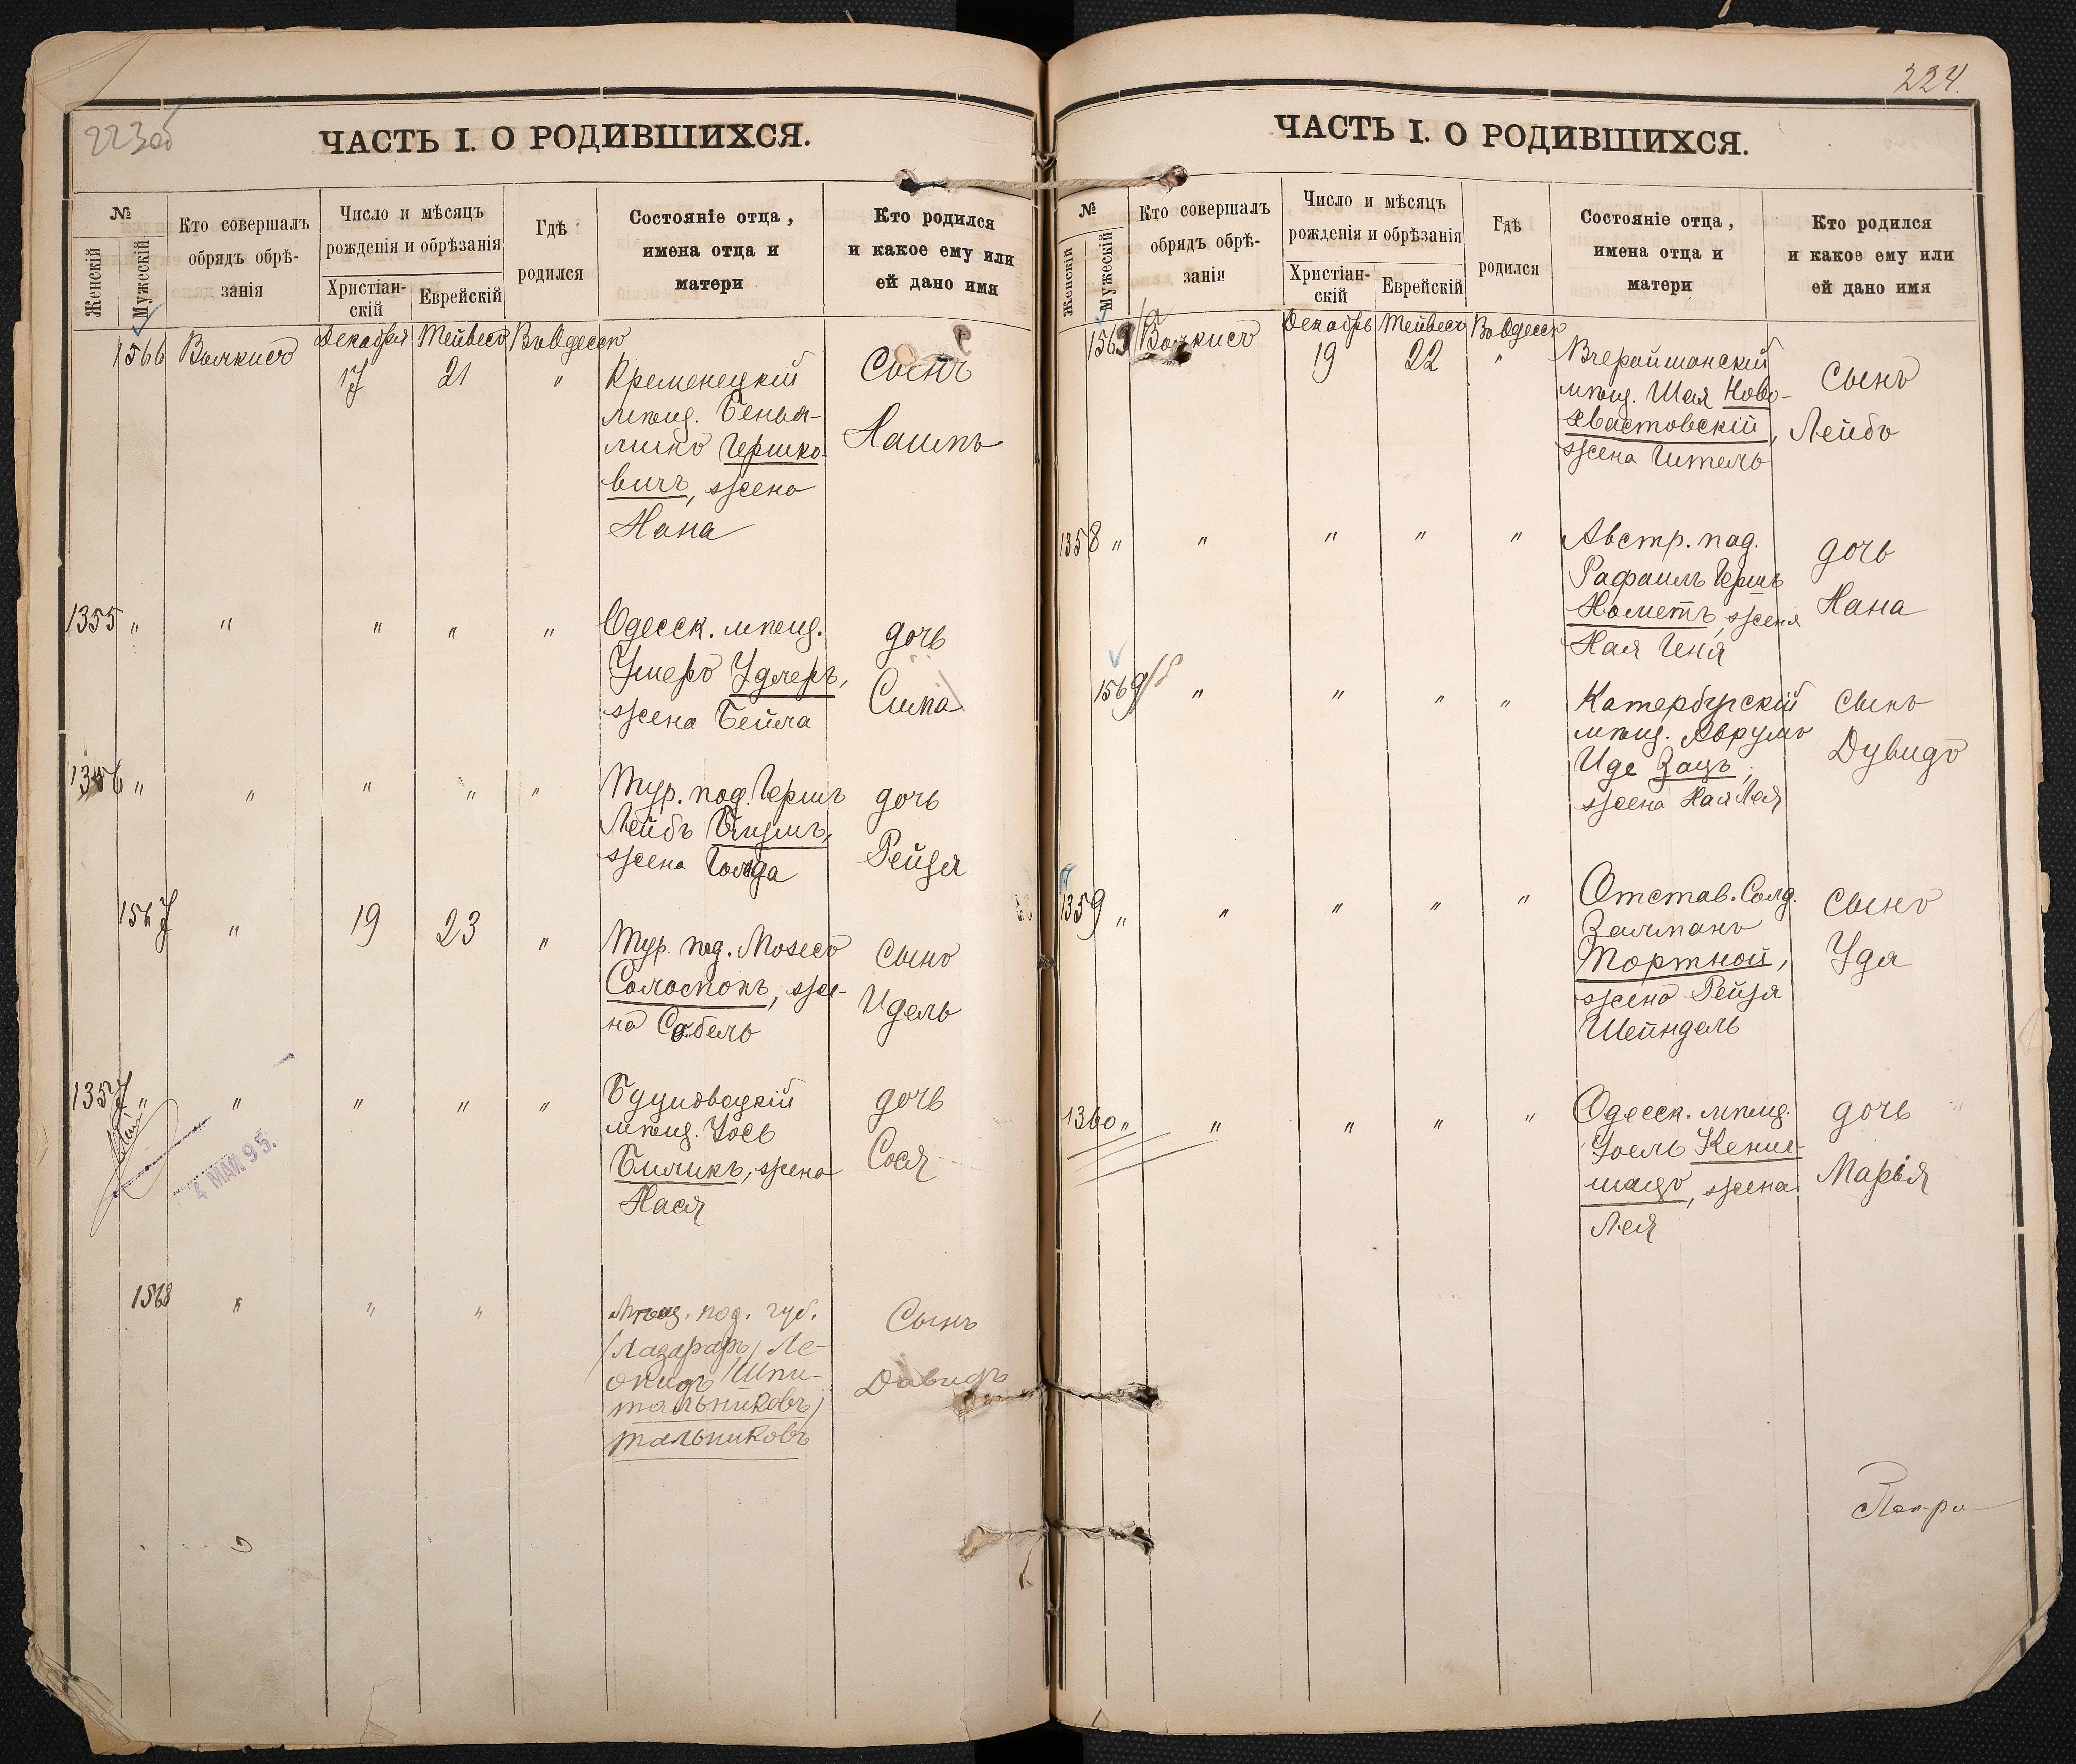 223об
ЧАСТЬ I. О РОДИВШИХСЯ.
№
Женскій
Мужескій
Кто совершалъ
обрядъ обрѣ-
занія
Число и мѣсяцъ
рожденія и обрѣзанія
Христіан-
скій
Еврейскій
Гдѣ
родился
Состояніе отца,
имена отца и
матери
Кто родился
и какое ему или
ей дано имя
1566
Декабря
Тейвесъ
17
21
"
Кременецкій
мѣщ. Бенья-
минъ Гершко-
вичъ, жена
Хана
Сынъ
1355 "
"
"
"
"
Одесск. мѣщ.
Ушеръ Удлеръ,
жена Бейла
дочь
Сима
1356 "
"
"
"
"
Тур. под. Гершъ
Лейбъ
жена Голда
дочь
Рейзя
1567
"
19
23
"
Тур. под. Мозесъ
Соломонъ, же-
на
сынъ
Идель
1357 "
"
"
"
"
мѣщ. Іось
Биликъ, жена
Хася
дочь
Сося
4 МАЯ 95.
1568
"
"
"
Мѣщ. под. губ.
Ле-
онидъ (Шпи-
тальниковъ)
тальниковъ
Сынъ
Давидъ
224.
ЧАСТЬ I. О РОДИВШИХСЯ.
№
Женскій
Мужескій
Кто совершалъ
обрядъ обрѣ-
занія
Число и мѣсяцъ
рожденія и обрѣзанія
Христіан-
скій
Еврейскій
Гдѣ
родился
Состояніе отца,
имена отца и
матери
Кто родился
и какое ему или
ей дано имя
1569/а
Декабрь
Тейвесъ
19
22
"
мѣщ. Шая Ново-
хвастовскій,
жена Гитель
Сынъ
Лейбъ
1358 "
"
"
"
"
Австр. под.
Рафаилъ Гершъ
жена
Хая Геня
дочь
Хана
1569/б
"
"
"
"
Катербургскій
мѣщ. Аврумъ
Иде Зацъ,
жена Хая Лея
сынъ
Дувидъ
1359 "
"
"
"
"
Отстав. Солд.
Залманъ
Портной,
жена Рейзя
Шейндель
сынъ
Уда
1360 "
"
"
"
"
Одесск. мѣщ.
Іоель
жена
Лея
дочь
Марья